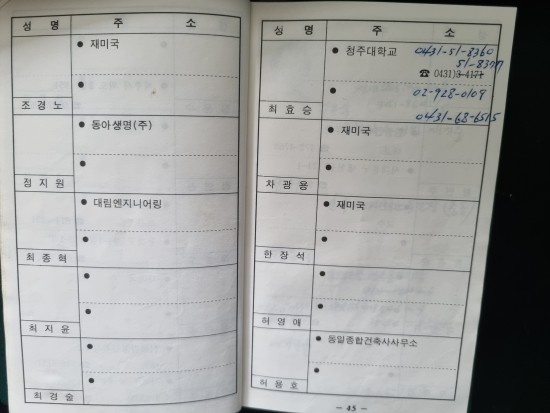 성 명 주 소
● 재미국
●
조 경 노
● 동아생명(주)
●
정 지 원
● 대림엔지니어링
●
최 종 혁
●
●
최 지 윤
●
●
최 경 술
성 명 주 소
● 청주대학교 0431-51-8360
51-8377
☎ 0431)3-4171
● 02-928-0109
최 효 승 0431-68-6515
● 재미국
●
차 광 용
● 재미국
●
한 장 석
●
●
허 영 애
● 동일종합건축사사무소
●
허 용 호
- 45 -